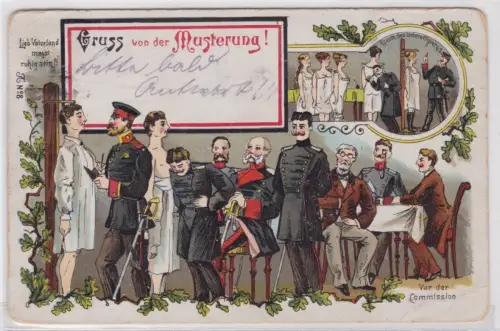 Lieb Vaterland
magst
ruhig sein!!
Gruss von der Musterung!
Bitte bald
Antwort!!
Vor der
Commission